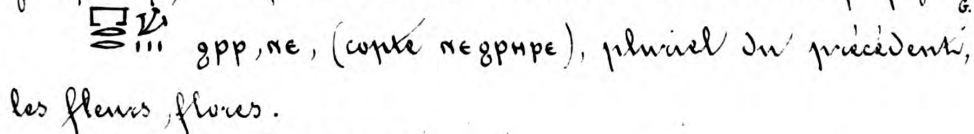 ϩρρ,ⲛⲉ, (copte ⲛⲉϩⲣⲏⲣⲉ), pluriel du précédent,
les fleurs, flores.